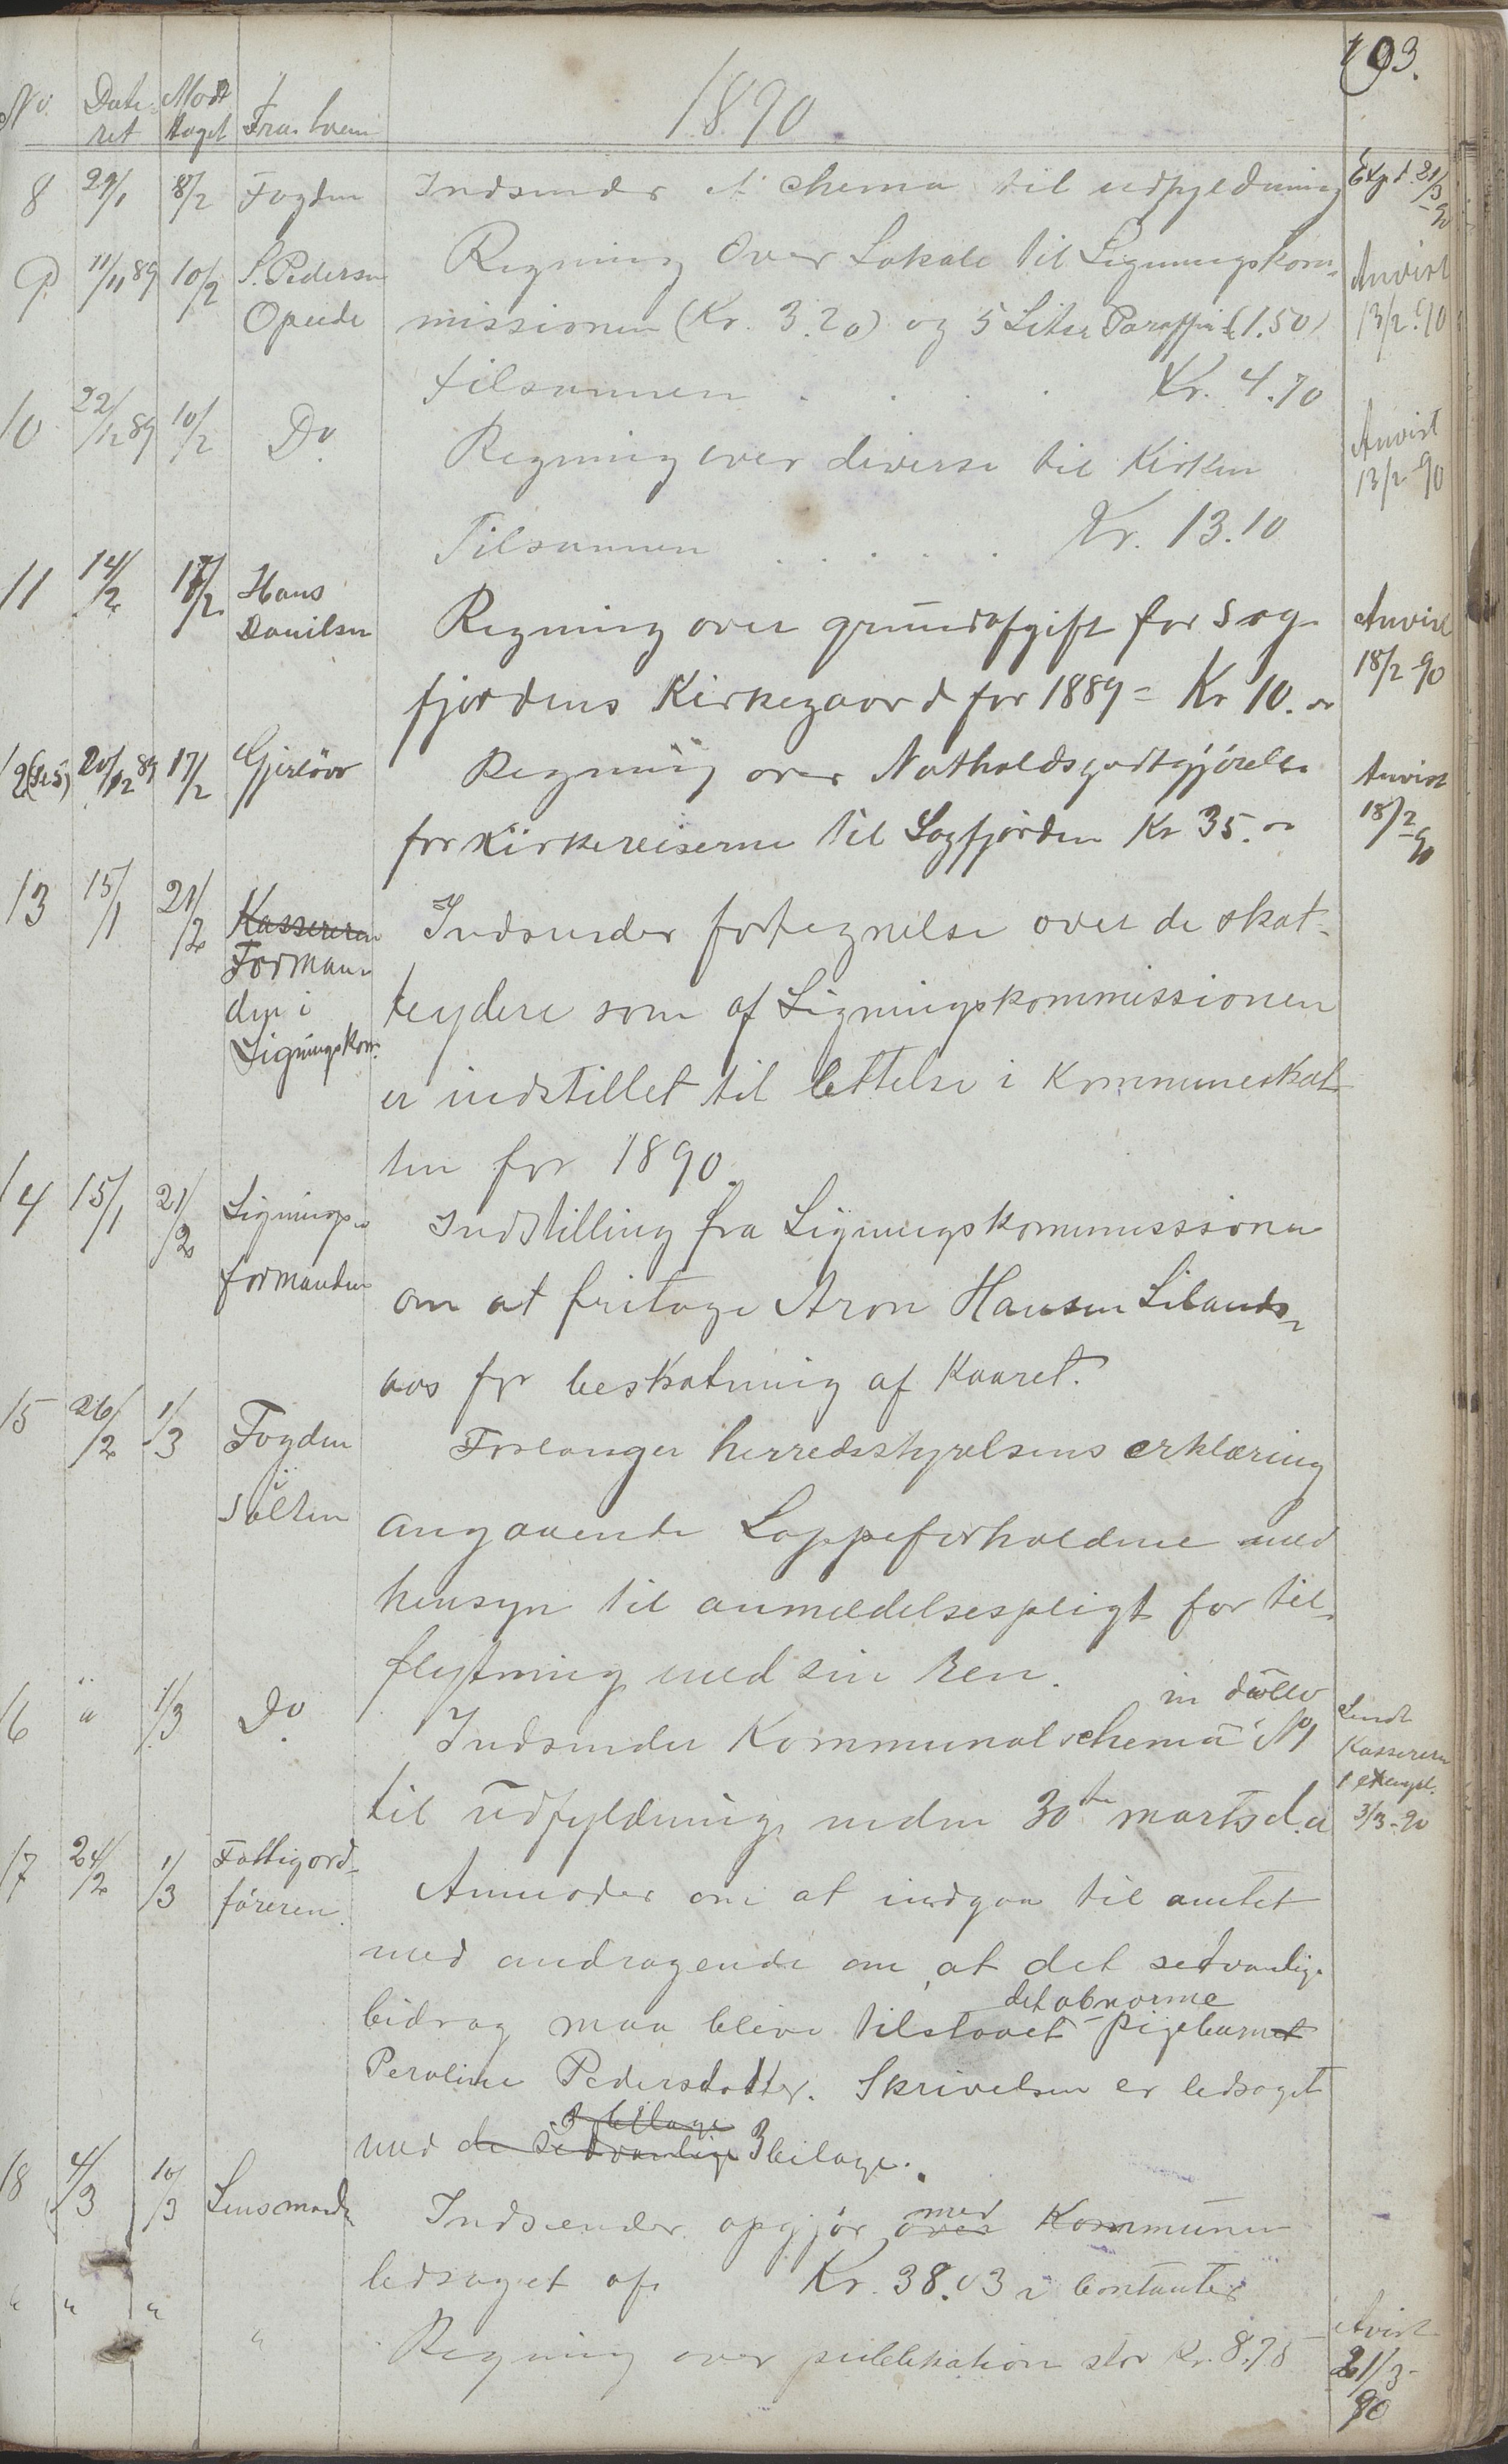 193.
No. Date- Mod- Fra hvem 1890
ret taget
8 29/1 8/2 Fogden Indsender et schema til udfyldning Expd. 21/3-90
9. 11/11 89 10/2 S. Pedersen Regning over Lokale til Ligningskom- Anvist
Opeide missionen (Kr. 3.20) og 5 Liter Paraffin (1.50) 13/2.90
tilsammen . . . . Kr. 4.70
10 22/12 89 10/2 Do. Regning over diverse til Kirken Anvist
13/2 90
Tilsammen . . . . Kr. 13.10
11 14/2 17/2 Hans Regning over grundafgift for Sag- Anvist
Danilsen 18/2 90
fjordens Kirkegaard for 1889 = Kr 10.
12 (Se 5) 20/12 89 17/2 Gjerløw Regning over Natholdsgodtgjörelse Anvist
for Kirkereiserne til Sagfjorden Kr 35. 18/2-90
13 15/1 21/2 Kassereren Indsender fortegnelse over de skat-
Forman-
den i teydere som af Ligningskommissionen
Ligningskom.
er indstillet til lettelse i Kommuneskat-
ten for 1890.
14 15/1 21/2 Lignings- Indstilling fra Ligningskommissionen
formanden om at fritage Aron Hansen Lilands-
aas for beskatning af Kaaret.
15 26/2 1/3 Fogden Forlanger herredsstyrelsens erklæring
i
Salten angaaende Lappeforholdene med
hensyn til anmeldelsespligt for til-
flytning med sin ren.
in duplo
16 " 1/3 Do. Indsender Kommunalschema No 1 Sendt
Kassereren
1 exempl.
til udfyldning inden 30te marts d.a 3/3-90
17 24/2 1/3 Fattigord- Anmoder om at indgaa til amtet
föreren.
med andragende om, at det sedvanlige
det abnorme
bidrag maa blive tilstaaet pigebarnet
Peroline Pedersdatter. Skrivelsen er ledsaget
3 bilage
med de sedvanlige 3 bilage.
18 4/3 10/3 Lensmand Indsender opgjör over med Kommunen
ledsaget af Kr. 38.03 i Contanter
" " " " Regning over publikation stor Kr. 8.75 Avist
21/3-
90